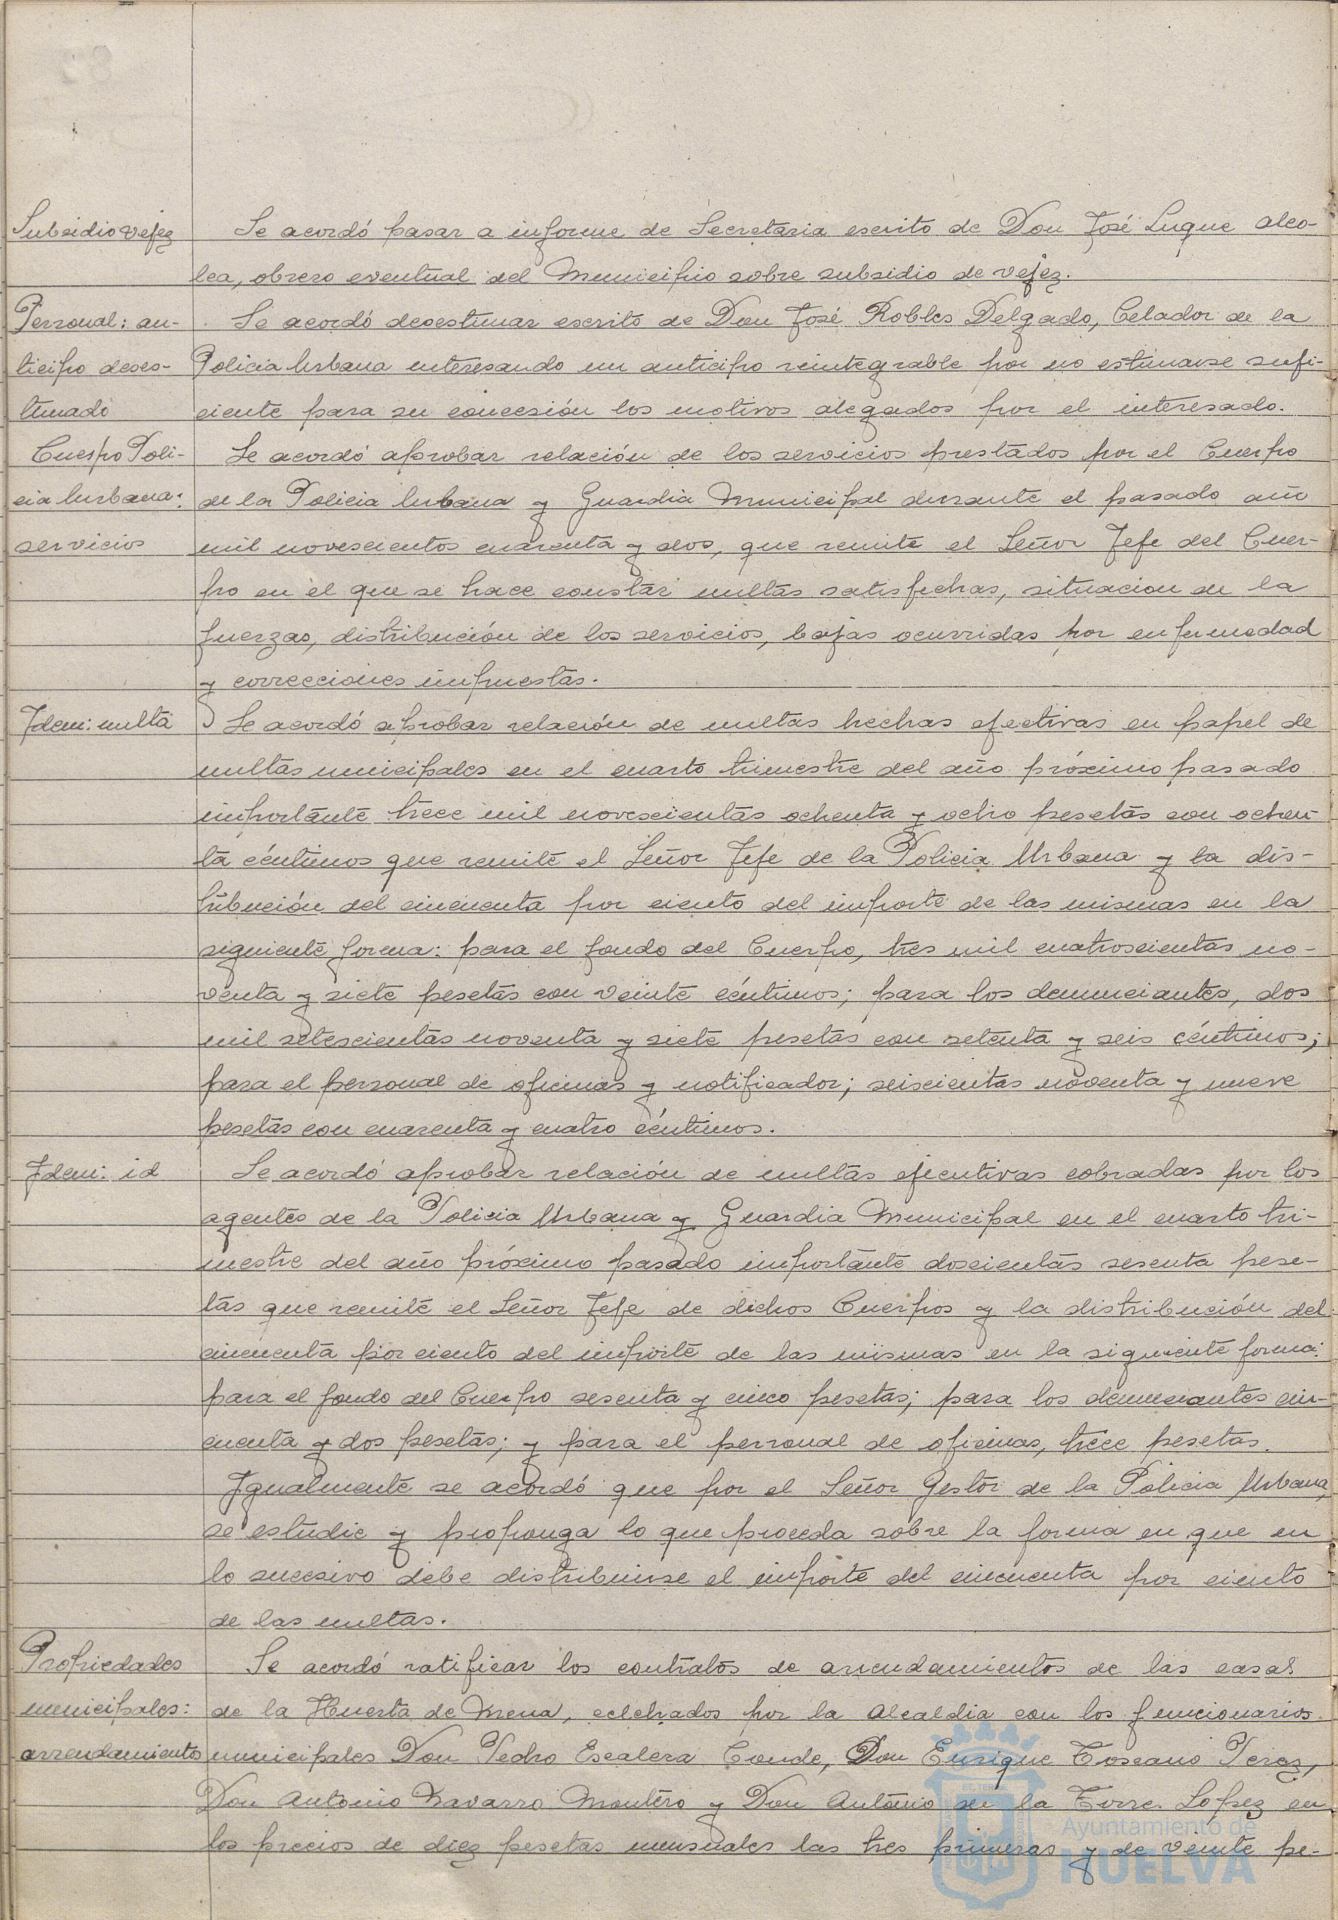 Subsidio vejez
Se acordó pasar a informe de Secretaria escrito de Don José Luque Alco-
lea, obrero eventual del Municipio sobre subsidio de vejez.
Personal: an-
ticipo deses-
timado
Se acordó desestimar escrito de Don José Robles Delgado, Celador de la
Policia Urbana interesando un anticipo reintegrable por no estimarse sufi-
ciente para su concesión los motivos alegados por el interesado.
Cuerpo Poli-
cia Urbana:
servicios
Se acordó aprobar relación de los servicios prestados por el Cuerpo
de la Policia Urbana y Guardia Municipal durante el pasado año
mil novescientos cuarenta y dos, que remite el Señor Jefe del Cuer-
po en el que se hace constar multas satisfechas, situacion de la
fuerzas, distribución de los servicios, bajas ocurridas por enfermedad
y correcciones impuestas.
Idem: multa
Se acordó aprobar relación de multas hechas efectivas en papel de
multas municipales en el cuarto trimestre del año próximo pasado
importante trece mil novescientas ochenta y ocho pesetas con ochen-
ta céntimos que remite el Señor Jefe de la Policia Urbana y la dis-
tribución del cincuenta por ciento del importe de las mismas en la
siguiente forma: para el fondo del Cuerpo, tres mil cuatroscientas no-
venta y siete pesetas con veinte céntimos; para los denunciantes, dos
mil setescientas noventa y siete pesetas con setenta y seis céntimos;
para el personal de oficinas y notificador; seiscientas noventa y nueve
pesetas con cuarenta y cuatro céntimos.
Idem: id
Se acordó aprobar relación de multas ejecutivas cobradas por los
agentes de la Policia Urbana y Guardia Municipal en el cuarto tri-
mestre del año próximo pasado importante doscientas sesenta pese-
tas que remite el Señor Jefe de dichos Cuerpos y la distribución del
cincuenta por ciento del importe de las mismas en la siguiente forma:
para el fondo del Cuerpo sesenta y cinco pesetas; para los denunciantes cin-
cuenta y dos pesetas; y para el personal de oficinas, trece pesetas.
Igualmente se acordó que por el Señor Gestor de la Policia Urbana,
se estudie y proponga lo que proceda sobre la forma en que en
lo sucesivo debe distribuirse el importe del cincuenta por ciento
de las multas.
Propiedades
municipales:
arrendamientos
Se acordó ratificar los contratos de arrendamientos de las casas
de la Huerta de Mena, celebrados por la Alcaldia con los funcionarios
municipales Don Pedro Escalera Conde, Don Enrique Toscano Perez,
Don Antonio Navarro Montero y Don Antonio de la Torre Lopez en
los precios de diez pesetas mensuales las tres primeras y de veinte pe-
Ayuntamiento de
HUELVA